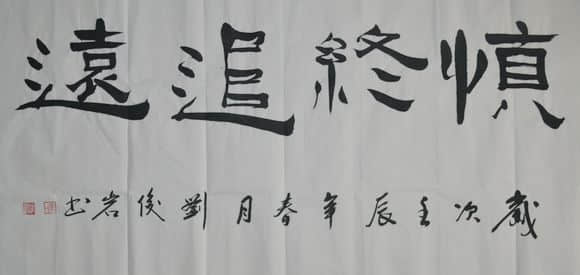 慎終追遠
歲次壬辰年春月劉俊岩书